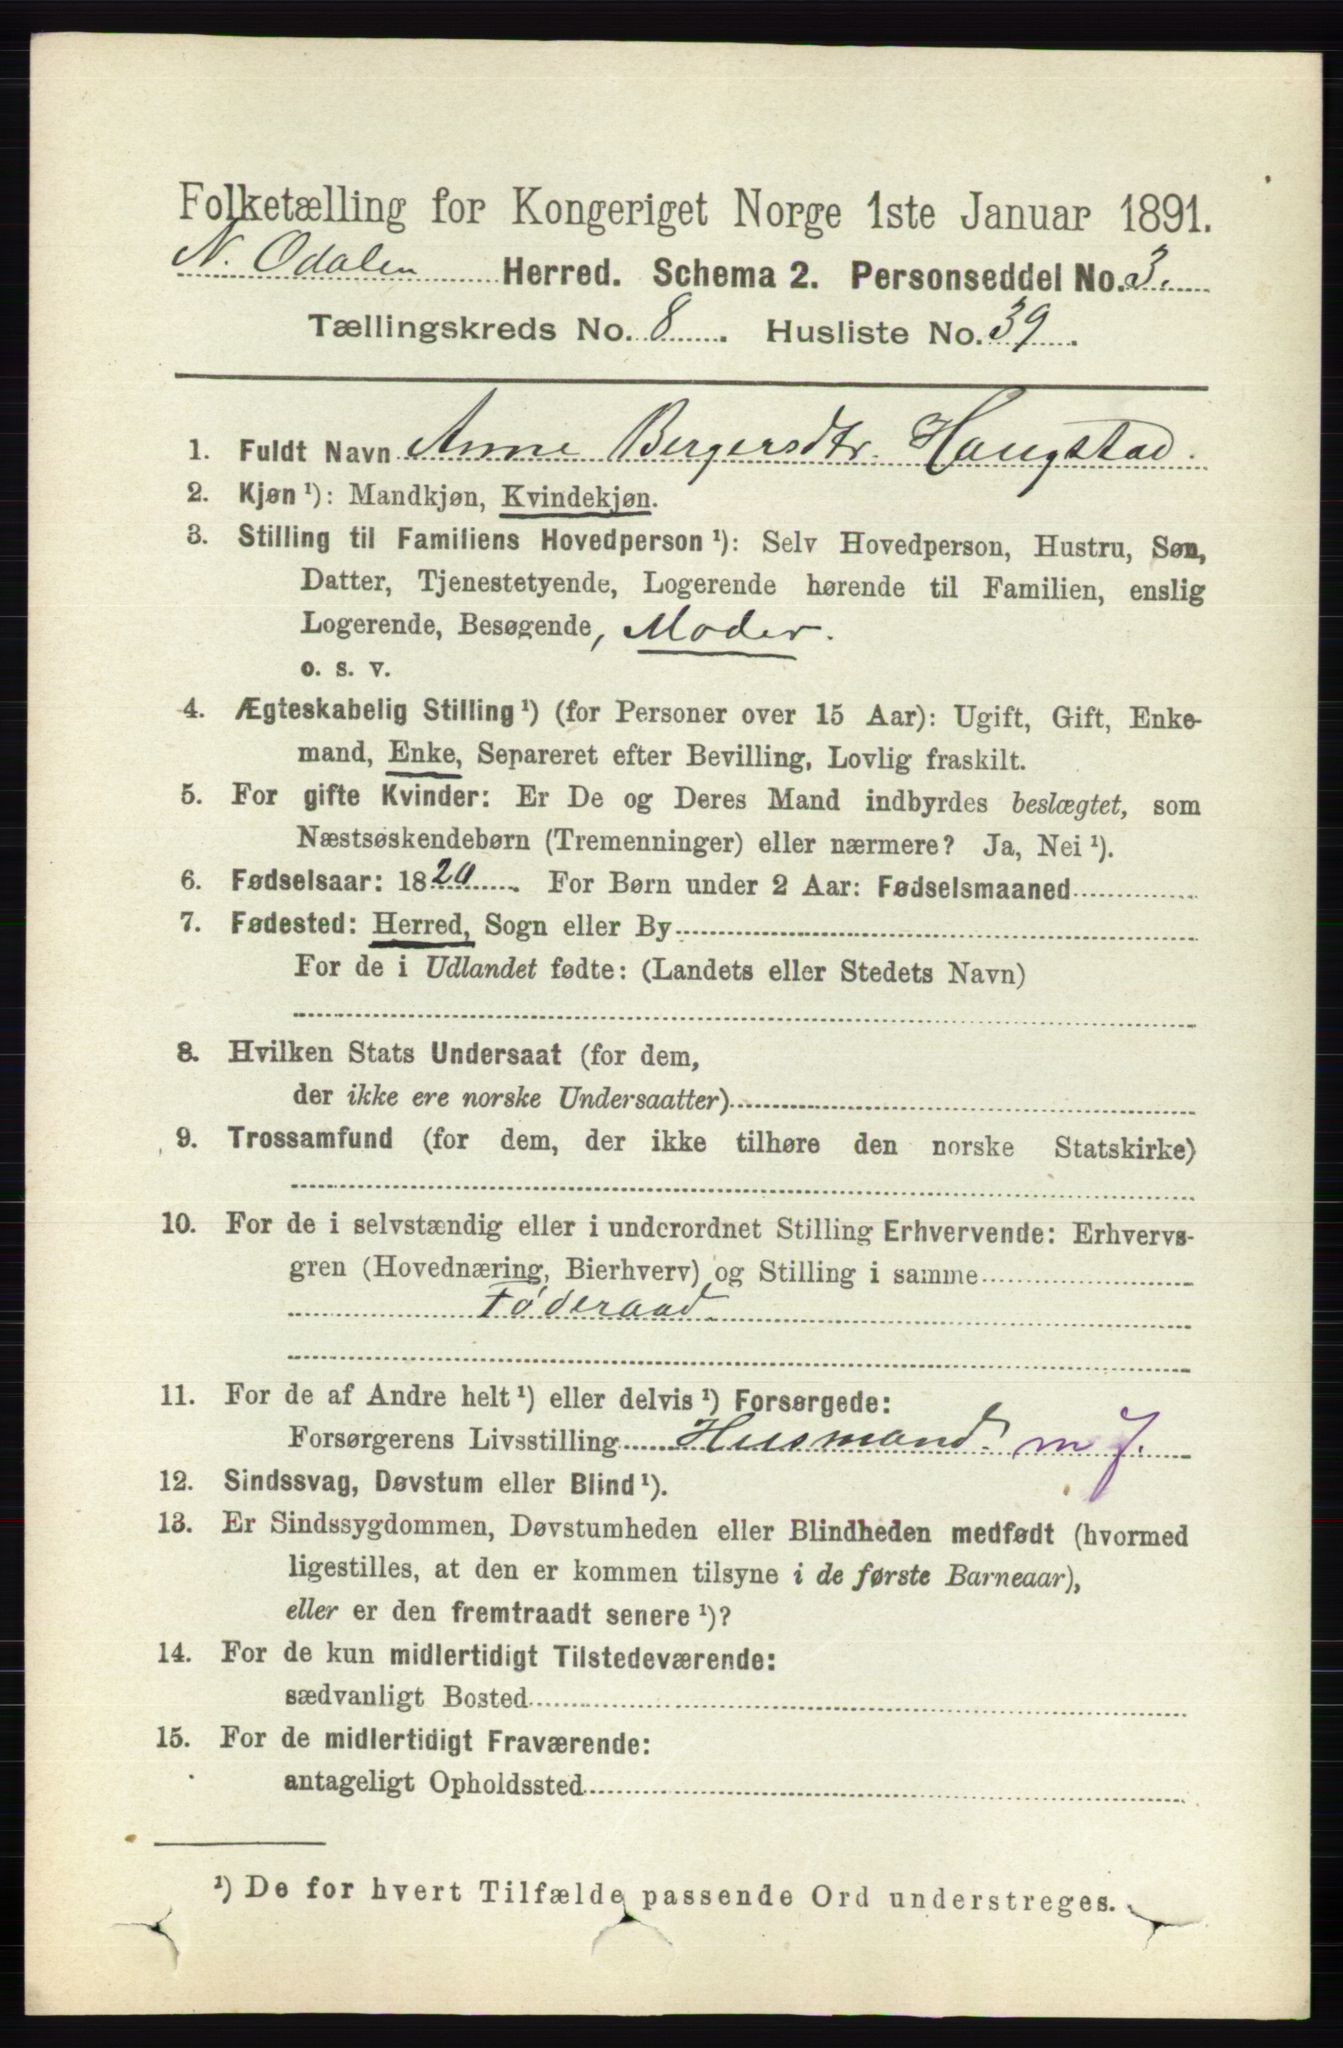 Folketælling for Kongeriget Norge 1ste Januar 1891.
N. Odalen Herred. Schema 2. Personseddel No. 3.
Tællingskreds No. 8. Husliste No. 39.
1. Fuldt Navn Anne Bergersdtr. Haugstad.
2. Kjøn ¹): Mandkjøn, Kvindekjøn.
3. Stilling til Familiens Hovedperson ¹): Selv Hovedperson, Hustru, Søn,
Datter, Tjenestetyende, Logerende hørende til Familien, enslig
Logerende, Besøgende, Moder.
o. s. v.
4. Ægteskabelig Stilling ¹) (for Personer over 15 Aar): Ugift, Gift, Enke-
mand, Enke, Separeret efter Bevilling, Lovlig fraskilt.
5. For gifte Kvinder: Er De og Deres Mand indbyrdes beslægtet, som
Næstsøskendebørn (Tremenninger) eller nærmere? Ja, Nei ¹).
6. Fødselsaar: 1820. For Børn under 2 Aar: Fødselsmaaned
7. Fødested: Herred, Sogn eller By
For de i Udlandet fødte: (Landets eller Stedets Navn)
8. Hvilken Stats Undersaat (for dem,
der ikke ere norske Undersaatter)
9. Trossamfund (for dem, der ikke tilhøre den norske Statskirke)
10. For de i selvstændig eller i underordnet Stilling Erhvervende: Erhvervs-
gren (Hovednæring, Bierhverv) og Stilling i samme
Føderaad.
11. For de af Andre helt ¹) eller delvis ¹) Forsørgede:
Forsørgerens Livsstilling Husmand. m J.
12. Sindssvag, Døvstum eller Blind ¹).
13. Er Sindssygdommen, Døvstumheden eller Blindheden medfødt (hvormed
ligestilles, at den er kommen tilsyne i de første Barneaar),
eller er den fremtraadt senere ¹)?
14. For de kun midlertidigt Tilstedeværende:
sædvanligt Bosted
15. For de midlertidigt Fraværende:
antageligt Opholdssted
¹) De for hvert Tilfælde passende Ord understreges.